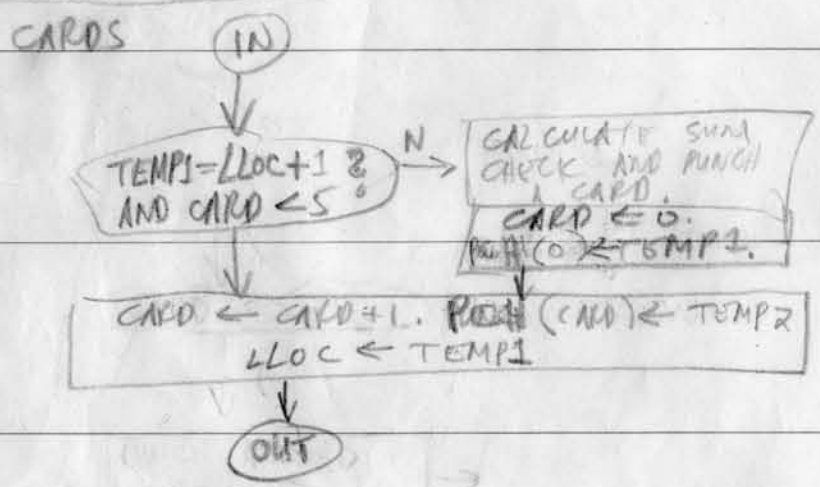 CARDS
IN
TEMP1=LLOC+1 ?
AND CARD <5
N
CALCULATE SUM
CHECK AND PUNCH
A CARD.
CARD ← 0.
(0) ← TEMP1.
CARD ← CARD+1. (CARD) ← TEMP2
LLOC ← TEMP1
OUT